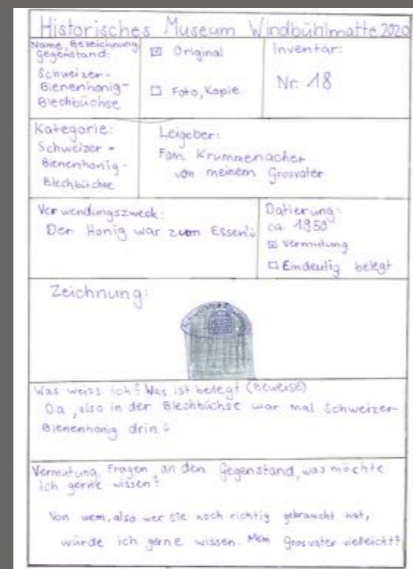 Historisches Museum Windbühlmatte 2020
Name, Bezeichnung
Gegenstand:
Schweizer-
Bienenhonig-
Blechbüchse
☑ Original
☐ Foto, Kopie
Inventar:
Nr. 18
Kategorie:
Schweizer-
Bienenhonig-
Blechbüchse
Leigeber:
Fam. Krummenacher
von meinem Grosvater
Verwendungszweck:
Der Honig war zum Essen
Datierung:
ca 1950
☑ Vermutung
☐ Eindeutig belegt
Zeichnung:
Was weiss ich? Was ist belegt (Beweise)
Da, also in der Blechbüchse war mal Schweizer-
Bienenhonig drin
Vermutung, Fragen an den Gegenstand, was möchte
ich gerne wissen?
Von wem, also wer sie noch richtig gebraucht hat,
würde ich gerne wissen. Mein Grosvater vielleicht?